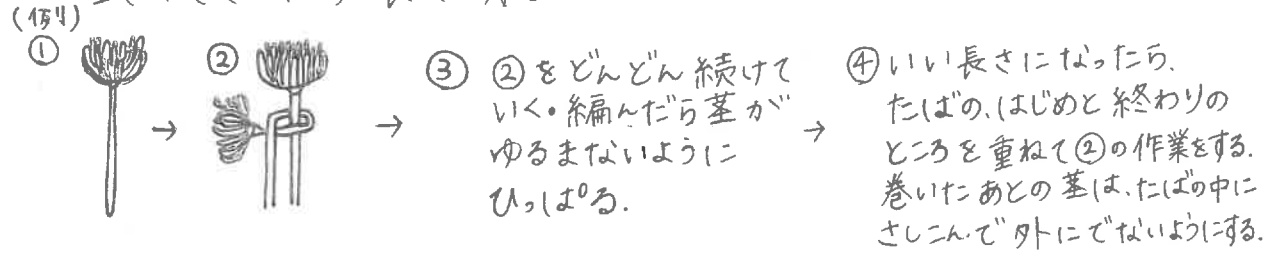 (例)
①
→
②
→
③ ②をどんどん続けて
いく。編んだら茎が
ゆるまないように
ひっぱる.
→
④ いい長さになったら、
たばの、はじめと終わりの
ところを重ねて②の作業をする.
巻いたあとの茎は、たばの中に
さしこんで外にでないようにする.